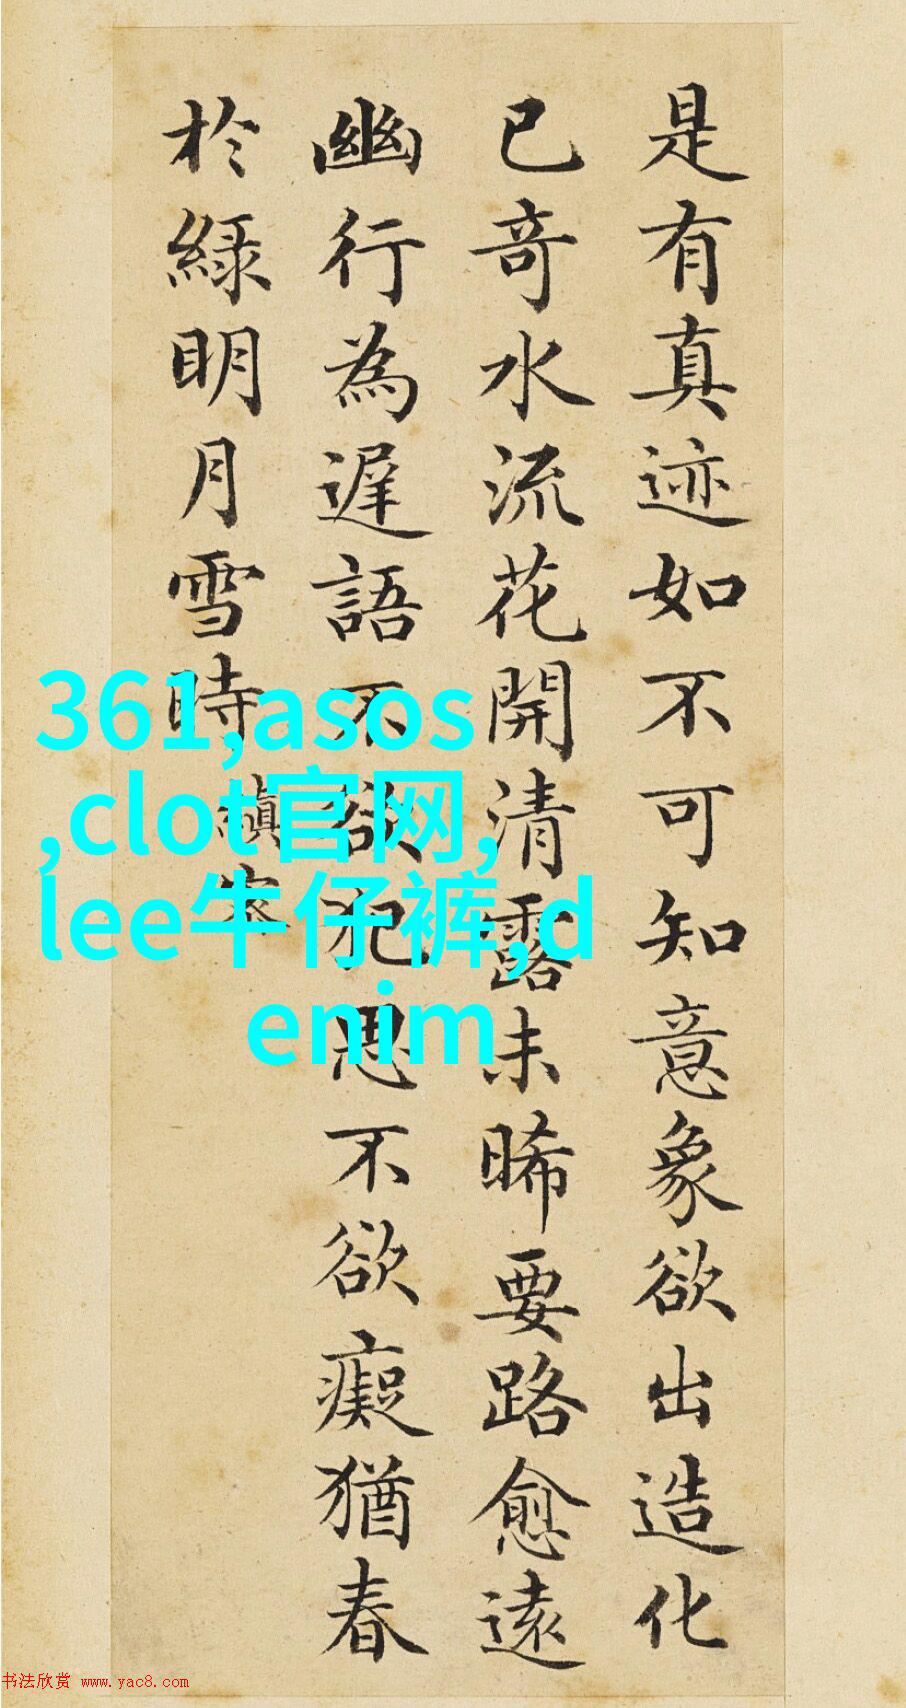 是有真迹如不可知意象欲出造化
已奇水流花開清露未晞要路愈遠
幽行為遲語不欲犯思不欲癡猶春
於綠明月雪時
縝宏
361,asos
,clot官网,
lee牛仔裤,d
enim
书法欣赏 www.yac8.com